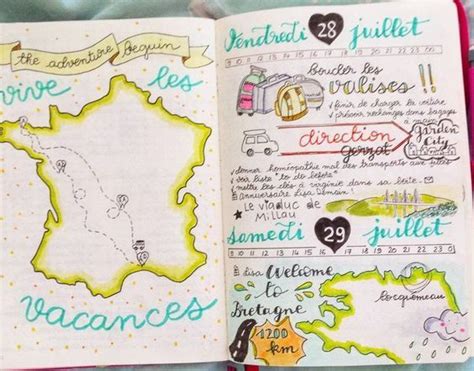 the adventure beguin
vive les
vacances
Vendredi 28 juillet
8 9 10 11 12 13 14 15 16 17 18 19 20 21 22 23 0
Boucler les
valises !!
✓ finir de charger la voiture
✓ prévoir rechanges dans bagages
à main
direction
Gerzat
Garden
City
✓ donner homéopathie mal des transports aux filles
✓ voir liste "to do liste"
✓ mettre les clés à virginie dans sa boite
anniversaire Lisa
Le viaduc de
Millau
samedi 29 juillet
8 9 10 11 12 13 14 15 16 17 18 19 20 21 22 23 0
Lisa Welcome
to
Bretagne
Locquémeau
1200
km